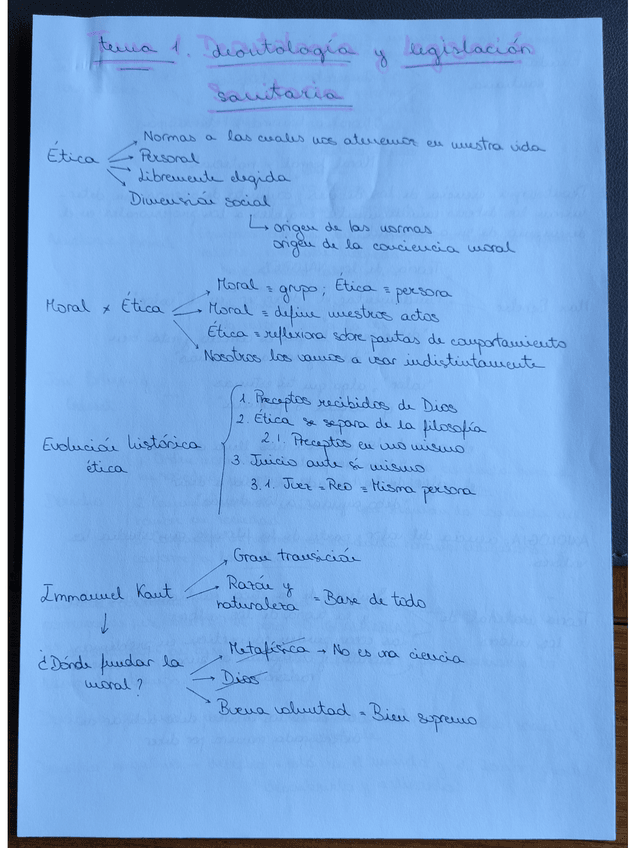 Tema 1. Deontología y legislación
Sanitaria
Ética
Normas a las cuales nos atenemos en nuestra vida
Personal
Libremente elegida
Dimensión social
origen de las normas
origen de la conciencia moral
Moral × Ética
Moral = grupo; Ética = persona
Moral = define nuestros actos
Ética = reflexiona sobre pautas de comportamiento
Nosotros los vamos a usar indistintamente
Evolución histórica
ética
1. Preceptos recibidos de Dios
2. Ética se separa de la filosofía
2.1. Preceptos en uno mismo
3. Juicio ante sí mismo
3.1. Juez = Reo = Misma persona
Immanuel Kant
Gran transición
Razón y
naturaleza = Base de todo
¿Dónde fundar la
moral?
Metafísica → No es una ciencia
Dios
Buena voluntad = Bien supremo